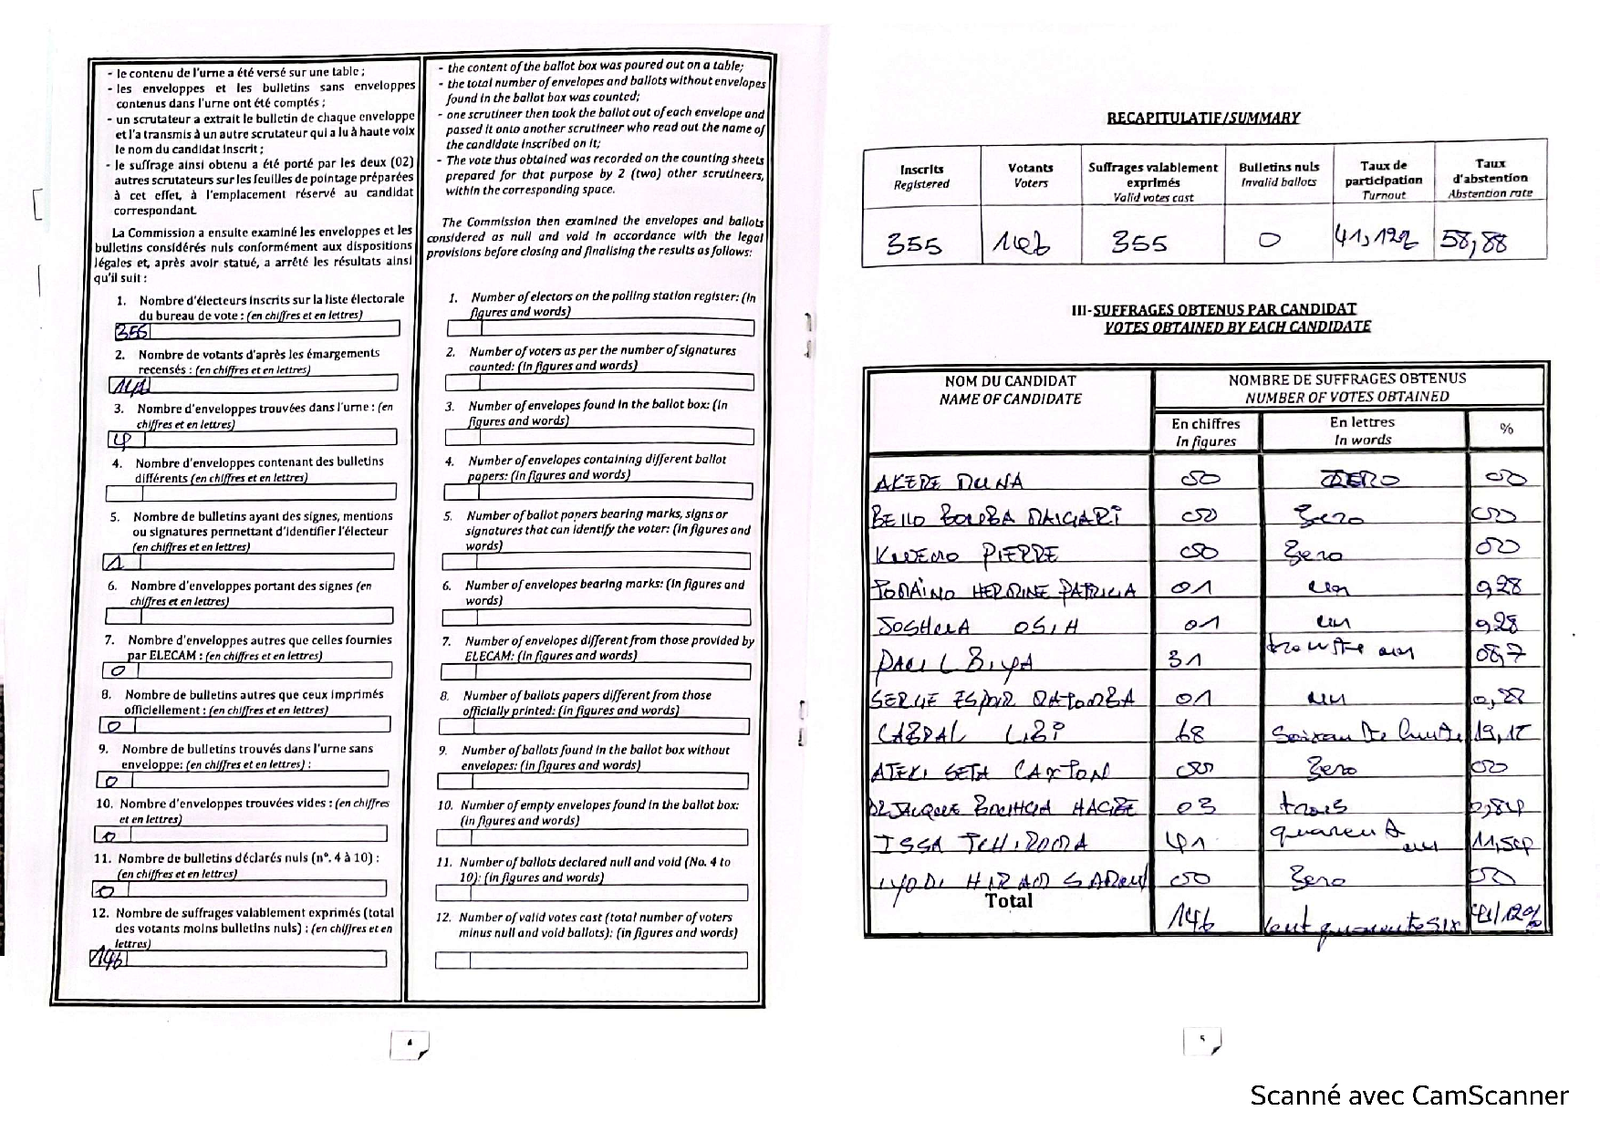 - le contenu de l'urne a été versé sur une table ;
- les enveloppes et les bulletins sans enveloppes
contenus dans l'urne ont été comptés ;
- un scrutateur a extrait le bulletin de chaque enveloppe
et l'a transmis à un autre scrutateur qui a lu à haute voix
le nom du candidat inscrit ;
- le suffrage ainsi obtenu a été porté par les deux (02)
autres scrutateurs sur les feuilles de pointage préparées
à cet effet, à l'emplacement réservé au candidat
correspondant.
La Commission a ensuite examiné les enveloppes et les
bulletins considérés nuls conformément aux dispositions
légales et, après avoir statué, a arrêté les résultats ainsi
qu'il suit :
1. Nombre d'électeurs inscrits sur la liste électorale
du bureau de vote : (en chiffres et en lettres)
355
2. Nombre de votants d'après les émargements
recensés : (en chiffres et en lettres)
3. Nombre d'enveloppes trouvées dans l'urne : (en
chiffres et en lettres)
4. Nombre d'enveloppes contenant des bulletins
différents (en chiffres et en lettres)
5. Nombre de bulletins ayant des signes, mentions
ou signatures permettant d'identifier l'électeur
(en chiffres et en lettres)
1
6. Nombre d'enveloppes portant des signes (en
chiffres et en lettres)
7. Nombre d'enveloppes autres que celles fournies
par ELECAM : (en chiffres et en lettres)
0
8. Nombre de bulletins autres que ceux imprimés
officiellement : (en chiffres et en lettres)
0
9. Nombre de bulletins trouvés dans l'urne sans
enveloppe: (en chiffres et en lettres) :
0
10. Nombre d'enveloppes trouvées vides : (en chiffres
et en lettres)
0
11. Nombre de bulletins déclarés nuls (n°. 4 à 10) :
(en chiffres et en lettres)
0
12. Nombre de suffrages valablement exprimés (total
des votants moins bulletins nuls) : (en chiffres et en
lettres)
146
- the content of the ballot box was poured out on a table;
- the total number of envelopes and ballots without envelopes
found in the ballot box was counted;
- one scrutineer then took the ballot out of each envelope and
passed it onto another scrutineer who read out the name of
the candidate inscribed on it;
- The vote thus obtained was recorded on the counting sheets
prepared for that purpose by 2 (two) other scrutineers,
within the corresponding space.
The Commission then examined the envelopes and ballots
considered as null and void in accordance with the legal
provisions before closing and finalising the results as follows:
1. Number of electors on the polling station register: (in
figures and words)
2. Number of voters as per the number of signatures
counted: (in figures and words)
3. Number of envelopes found in the ballot box: (in
figures and words)
4. Number of envelopes containing different ballot
papers: (in figures and words)
5. Number of ballot papers bearing marks, signs or
signatures that can identify the voter: (in figures and
words)
6. Number of envelopes bearing marks: (in figures and
words)
7. Number of envelopes different from those provided by
ELECAM: (in figures and words)
8. Number of ballots papers different from those
officially printed: (in figures and words)
9. Number of ballots found in the ballot box without
envelopes: (in figures and words)
10. Number of empty envelopes found in the ballot box:
(in figures and words)
11. Number of ballots declared null and void (No. 4 to
10): (in figures and words)
12. Number of valid votes cast (total number of voters
minus null and void ballots): (in figures and words)
4
RECAPITULATIF/SUMMARY
Inscrits Registered Votants Voters Suffrages valablement exprimés Valid votes cast Bulletins nuls Invalid ballots Taux de participation Turnout Taux d'abstention Abstention rate
355 146 355 0 41,12% 58,88
III- SUFFRAGES OBTENUS PAR CANDIDAT
VOTES OBTAINED BY EACH CANDIDATE
NOM DU CANDIDAT NOMBRE DE SUFFRAGES OBTENUS
NAME OF CANDIDATE NUMBER OF VOTES OBTAINED
En chiffres En lettres %
In figures In words
AKERE MUNA 00 ZERO 00
BELLO BOUBA MAIGARI 00 Zero 00
KWEMO PIERRE 00 Zero 00
TOMAÏNO HERMINE PATRICIA 01 un 0,28
JOSHUA OSIH 01 un 0,28
PAUL BIYA 31 trente un 08,7
SERGE ESPOIR MATOMBA 01 un 0,28
CABRAL LIBI 68 Soixante huit 19,15
ATEKI SETA CAXTON 00 Zero 00
DR JACQUE BOUHGA HAGBE 03 trois 0,84
ISSA TCHIROMA 41 quarante un 11,54
IYODI HIRAM SAMUEL 00 Zero 00
Total 146 Cent quarante six 41,12%
5
Scanné avec CamScanner